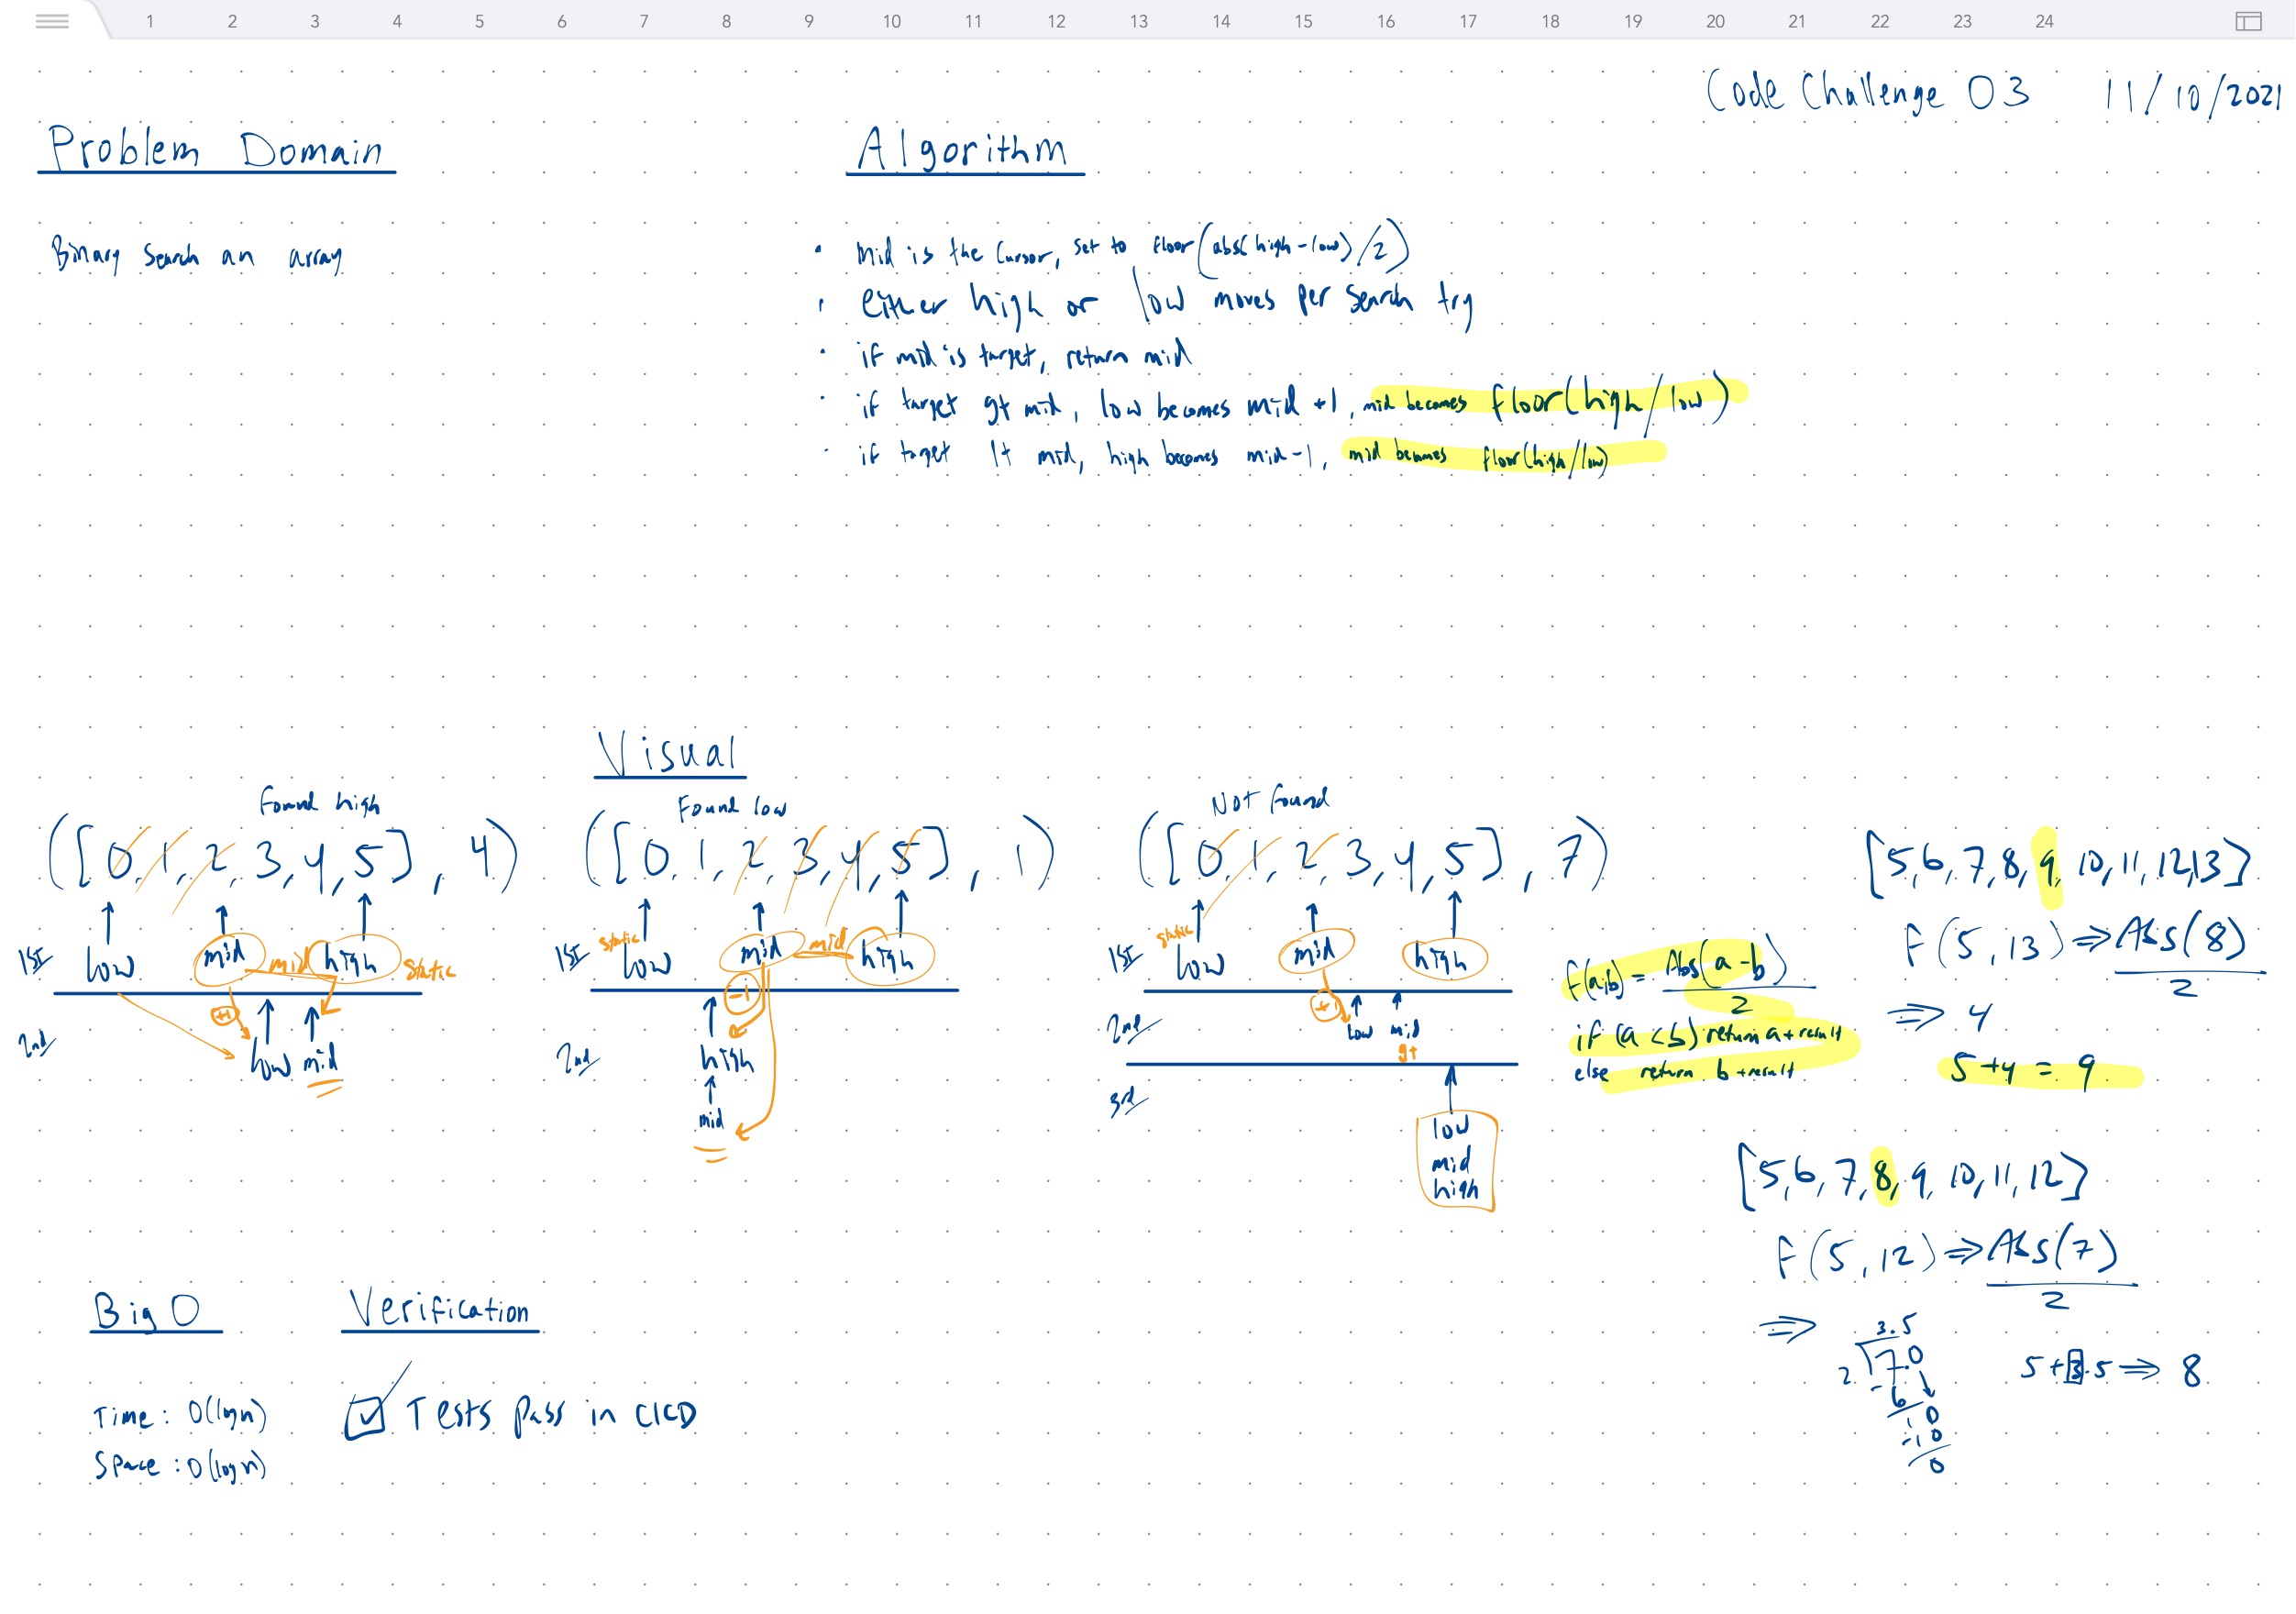 1 2 3 4 5 6 7 8 9 10 11 12 13 14 15 16 17 18 19 20 21 22 23 24
Code Challenge 03 11/10/2021
Problem Domain
Binary Search an array
Algorithm
· Mid is the Cursor, set to floor(abs(high-low)/2)
· either high or low moves per search try
· if mid is target, return mid
· if target gt mid, low becomes mid +1, mid becomes floor(high/low)
· if target lt mid, high becomes mid-1, mid becomes floor(high/low)
Visual
Found high
([0,1,2,3,4,5], 4)
1st low mid mid high static
+1
2nd low mid
Found low
([0,1,2,3,4,5], 1)
1st static low mid mid high
-1
2nd high
mid
Not found
([0,1,2,3,4,5], 7)
1st static low mid high
+1
2nd low mid
gt
3rd
low
mid
high
f(a,b) = Abs(a-b)
2
if (a<b) return a+result
else return b+result
[5,6,7,8,9,10,11,12,13]
F(5,13) ⇒ Abs(8)
2
⇒ 4
5+4 = 9
[5,6,7,8,9,10,11,12]
F(5,12) ⇒ Abs(7)
2
⇒
3.5
2 7.0
-6
10
-10
0
5+3.5 ⇒ 8
Big O
Time: O(logn)
Space: O(logn)
Verification
Tests Pass in CICD